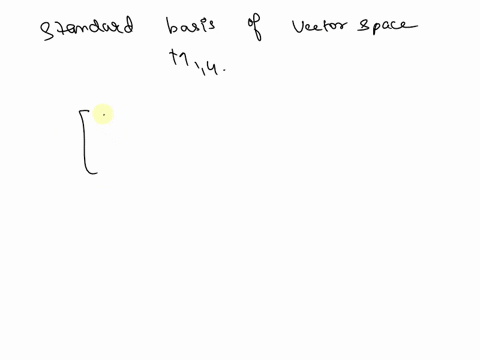 Standard basis of Vector space
M1,4.
[